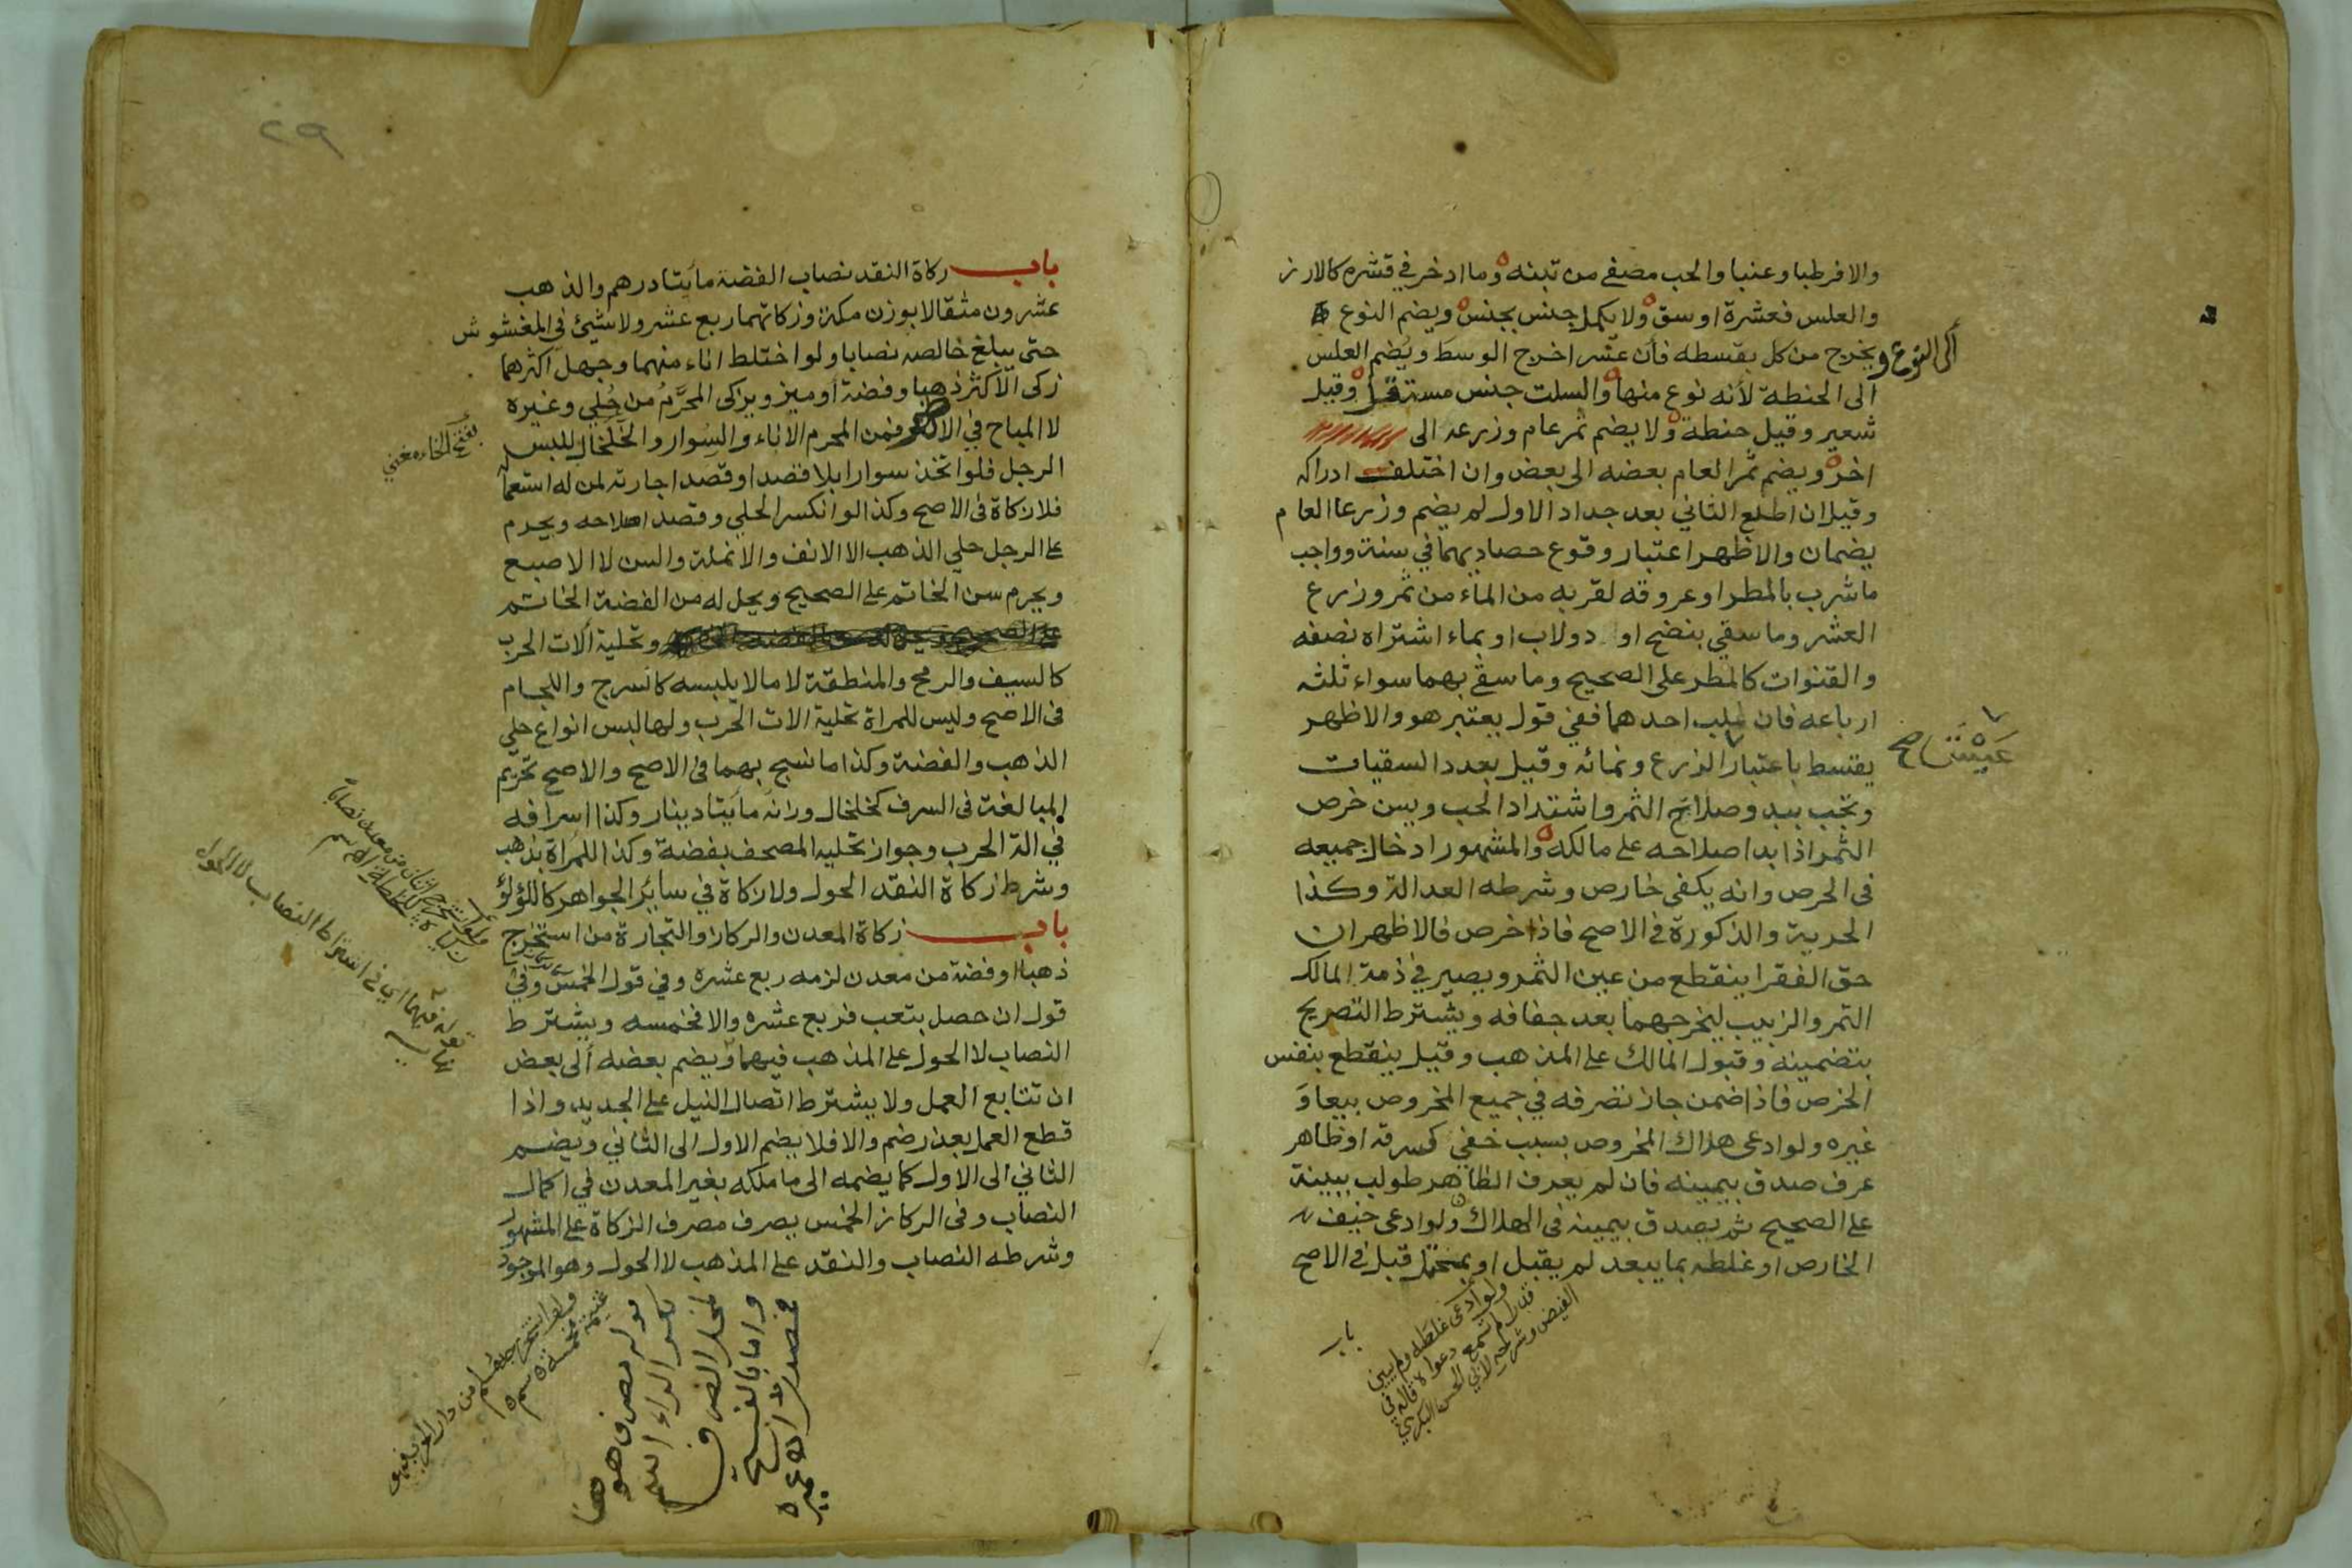 والا فرطبا وعنبا والحب مصفى من تبنه وما ادخر في قشره كالارز
والعلس فعشرة اوسق ولا يكمل جنس بجنس ويضم النوع
الى النوع و
يخرج من كل بقسطه فان عسر اخرج الوسط ويضم العلس
الى الحنطة لأنه نوع منها والسلت جنس مستقل وقيل
شعير وقيل حنطة ولا يضم ثمر عام وزرعه الى
اخر ويضم ثمر العام بعضه الى بعض وان اختلف ادراكه
وقيل ان اطلع الثاني بعد جداد الاول لم يضم وزرعا العام
يضمان والاظهر اعتبار وقوع حصاديهما في سنة وواجب
ما شرب بالمطر او عروقه لقربه من الماء من ثمر وزرع
العشر وما سقي بنضح او دولاب او بماء اشتراه نصفه
والقنوات كالمطر على الصحيح وما سقي بهما سواء ثلثه
ارباعه فان غلب احدهما ففي قول يعتبر هو والاظهر
يقسط باعتبار الزرع ونمائه وقيل بعدد السقيات
عيش صح
وتجب ببدو صلاح الثمر واشتداد الحب ويسن خرص
الثمر اذا بدا صلاحه على مالكه والمشهور ادخال جميعه
في الخرص وانه يكفي خارص وشرطه العدالة وكذا
الحرية والذكورة في الاصح فاذا خرص فالاظهر ان
حق الفقرا ينقطع من عين الثمر ويصير في ذمة المالك
التمر والزبيب ليخرجهما بعد جفافه ويشترط التصريح
بتضمينه وقبول المالك على المذهب وقيل ينقطع بنفس
الخرص فاذا ضمن جاز تصرفه في جميع المخروص بيعا و
غيره ولو ادعى هلاك المخروص بسبب خفي كسرقة او ظاهر
عرف صدق بيمينه فان لم يعرف الظاهر طولب ببينة
على الصحيح ثم يصدق بيمينه في الهلاك ولو ادعى حيف
الخارص او غلطه بما يبعد لم يقبل او بمحتمل قبل في الاصح
ولو ادعى غلطه ولم يبين
قدرا لم تسمع دعواه قاله في
الفيض وشرحه لأبي الحسن البكري
باب
٢٩
باب زكاة النقد نصاب الفضة مأيتا درهم والذهب
عشرون مثقالا بوزن مكة وزكاتهما ربع عشر ولا شيئ في المغشوش
حتى يبلغ خالصه نصابا ولو اختلط اناء منهما وجهل اكثرهما
زكى الأكثر ذهبا وفضة او ميز ويزكى المحرم من حلي وغيره
لا المباح في الاظهر فمن المحرم الاناء والسوار والخلخال للبس
بفتح الخاء مغني
الرجل فلو اتخذ سوارا بلا قصد او قصد اجارته لمن له استعماله
فلا زكاة في الاصح وكذا لو انكسر الحلي وقصد اصلاحه ويحرم
على الرجل حلي الذهب الا الانف والانملة والسن لا الاصبع
ويحرم سن الخاتم على الصحيح ويحل له من الفضة الخاتم
وتحلية ألات الحرب
كالسيف والرمح والمنطقة لا ما لا يلبسه كالسرج واللجام
في الاصح وليس للمراة تحلية الات الحرب ولها لبس انواع حلي
الذهب والفضة وكذا ما نسج بهما في الاصح والاصح تحريم
المبالغة في السرف كخلخال وزنه مأيتا دينار وكذا اسرافه
في الة الحرب وجواز تحلية المصحف بفضة وكذا للمرأة بذهب
وشرط زكاة النقد الحول ولا زكاة في سائر الجواهر كاللؤلؤ
باب زكاة المعدن والركاز والتجارة من استخرج
ذهبا او فضة من معدن لزمه ربع عشره وفي قول الخمس وفي
قول ان حصل بتعب فربع عشره والا فخمسه ويشترط
النصاب لا الحول على المذهب فيهما ويضم بعضه ألى بعض
ان تتابع العمل ولا يشترط اتصال النيل على الجديد واذا
قطع العمل بعذر ضم والا فلا يضم الاول الى الثاني ويضم
الثاني الى الاول كما يضمه الى ما ملكه بغير المعدن في اكمال
النصاب وفي الركاز الخمس يصرف مصرف الزكاة على المشهور
وشرطه النصاب والنقد على المذهب لا الحول وهو الموجود
قوله فيهما اي في اشتراط النصاب لا الحول
قوله مصرف هو
بكسر الراء اسم
لمحل الصرف
واما بالفتح
فمصدر
عميره